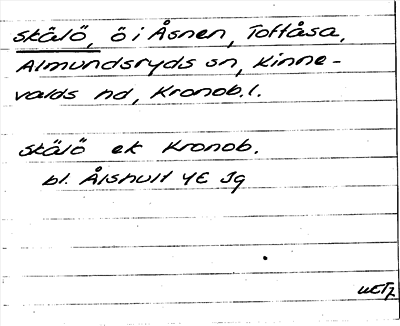 Skälö, ö i Åsnen, Toftåsa,
Almundsryds sn, Kinne-
valds hd, Kronob.l.
Skälö ek Kronob.
bl. Ålshult 4E Jg